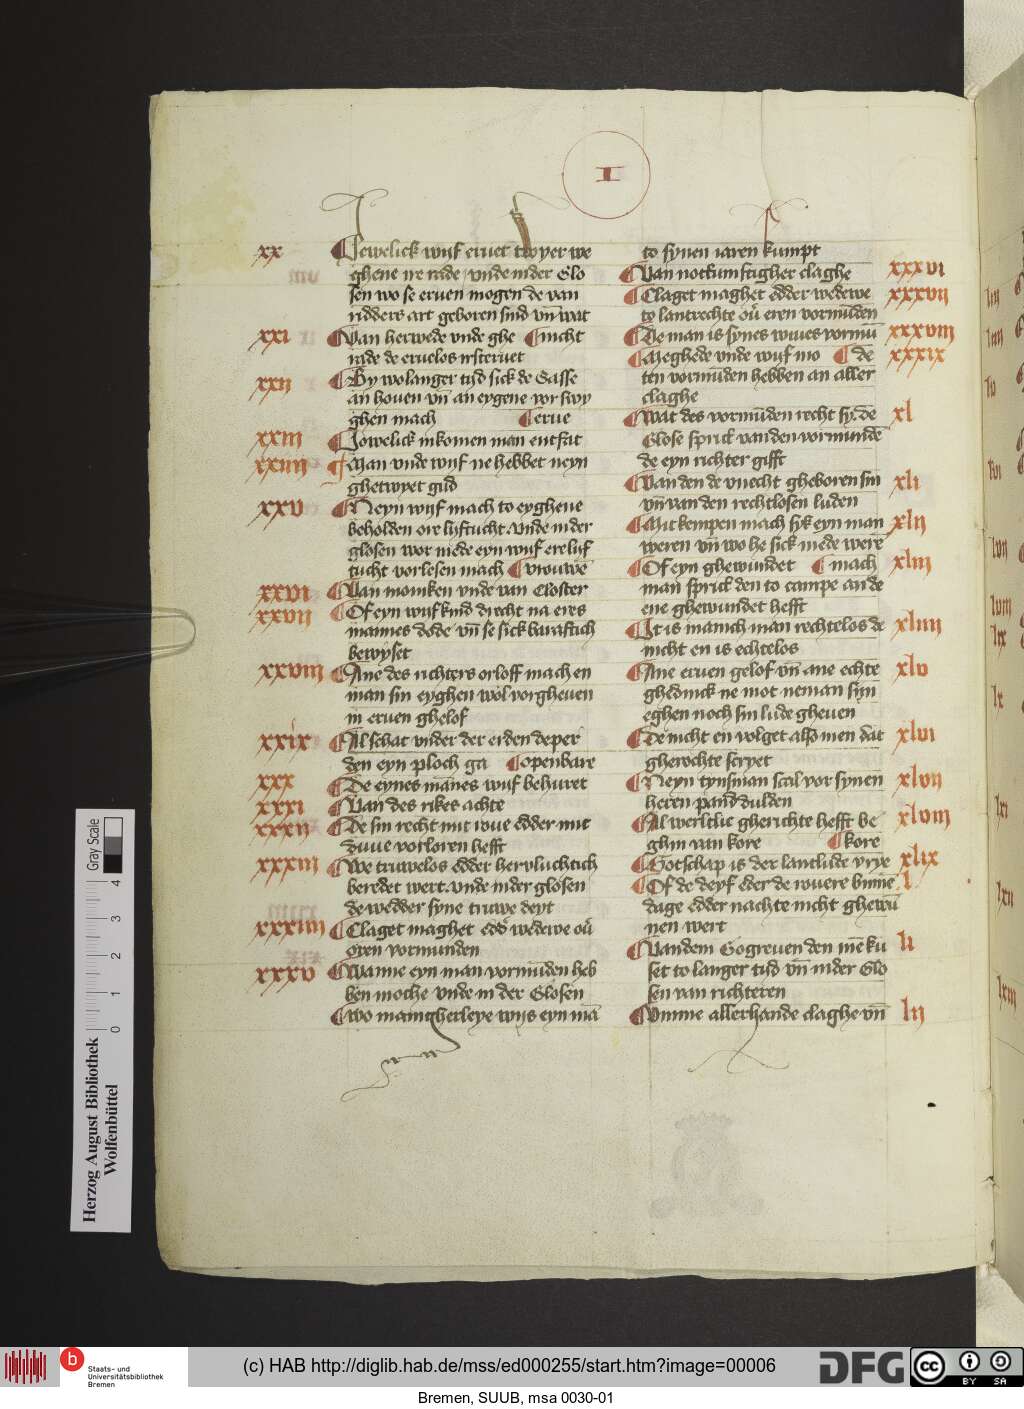 I
xx ¶ Jewelick wijf eruet twyer we
ghene ire rade vnde in der Glo
sen wo se eruen mogen de van
ridders art geboren sind vn̄ wat
xxi ¶ Van herwede vnde ghe ¶ nicht
rade de eruelos irsteruet
xxij ¶ By wo langer tijd sick de Sasse
an houen vn̄ an eygene vorswy
ghen mach ¶ erue
xxiij ¶ Jowelick inkomen man entfat
xxiiij ¶ Man vnde wijf ne hebbet neyn
ghetweyet gud
xxv ¶ Neyn wijf mach to eyghene
beholden ore lijftucht. vnde in der
glosen wor mede eyn wijf ere lijf
tucht vorlesen mach ¶ vrouwē
xxvi ¶ Van moniken vnde van Closter
xxvij ¶ Of eyn wijf kind drecht na eres
mannes dode vn̄ se sick baraftich
bewyset
xxviij ¶ Ane des richters orloff mach en
man sin eyghen wol vorgheuen
in eruen ghelof
xxix ¶ Al schat vnder der erden deper
den eyn ploch ga ¶ openbare
xxx ¶ De eynes mānes wijf behuret
xxxi ¶ Van des rikes achte
xxxij ¶ De sin recht mit roue edder mit
duue vorloren hefft
xxxiij ¶ We truwelos edder hervluchtich
beredet wert. vnde in der glosen
de wedder syne truwe deyt
xxxiiij ¶ Claget maghet edd' wedewe ou'
oren vormunden
xxxv ¶ Wanne eyn man vormūden heb
ben moche vnde in der Glosen
¶ Wo mainigherleye wijs eyn mā
to synen iaren kumpt
¶ Van notsumftigher claghe xxxvi
¶ Claget maghet edder wedewe xxxvij
to lantrechte ou' eren vormūden
¶ De man is synes wiues vormū xxxviij
¶ Meghede vnde wijf mo ¶ de xxxix
ten vormūden hebben an aller
claghe
¶ Wat des vormūden recht sy. de xl
Glose sprict van den vormundē
de eyn richter gifft
¶ Van den de vnecht gheboren sin xli
vn̄ van den rechtlosen luden
¶ Mit kempen mach sik eyn man xlij
weren vn̄ wo he sick mede were
¶ Of eyn ghewundet ¶ mach xliij
man sprict den to campe an de
ene ghewundet hefft
¶ It is manich man rechtelos de xliiij
nicht en is echtelos
¶ Ane eruen gelof vn̄ ane echte xlv
ghedinck ne mot neman sijn
eghen noch sin lude gheuen
¶ De nicht en volget alsmen dat xlvi
gherochte scryet
¶ Neyn tynsman scal vor synen xlvij
heren pand dulden
¶ Al werltlic gherichte hefft be xlviij
ghin van kore ¶ kore
¶ Gotschap is der lantlude vrye xlix
¶ Of de deyf eder de rouere binnē l
dage edder nachte nicht ghewū
nen wert
¶ Van dem Gogreuen den mē ku li
set to langer tijd vn̄ in der Glo
sen van richteren
¶ Vmme allerhande claghe vn̄ lij
Herzog August Bibliothek
Wolfenbüttel
0 1 2 3 4
Gray Scale
b
Staats- und
Universitätsbibliothek
Bremen
(c) HAB http://diglib.hab.de/mss/ed000255/start.htm?image=00006
DFG
CC BY SA
Bremen, SUUB, msa 0030-01